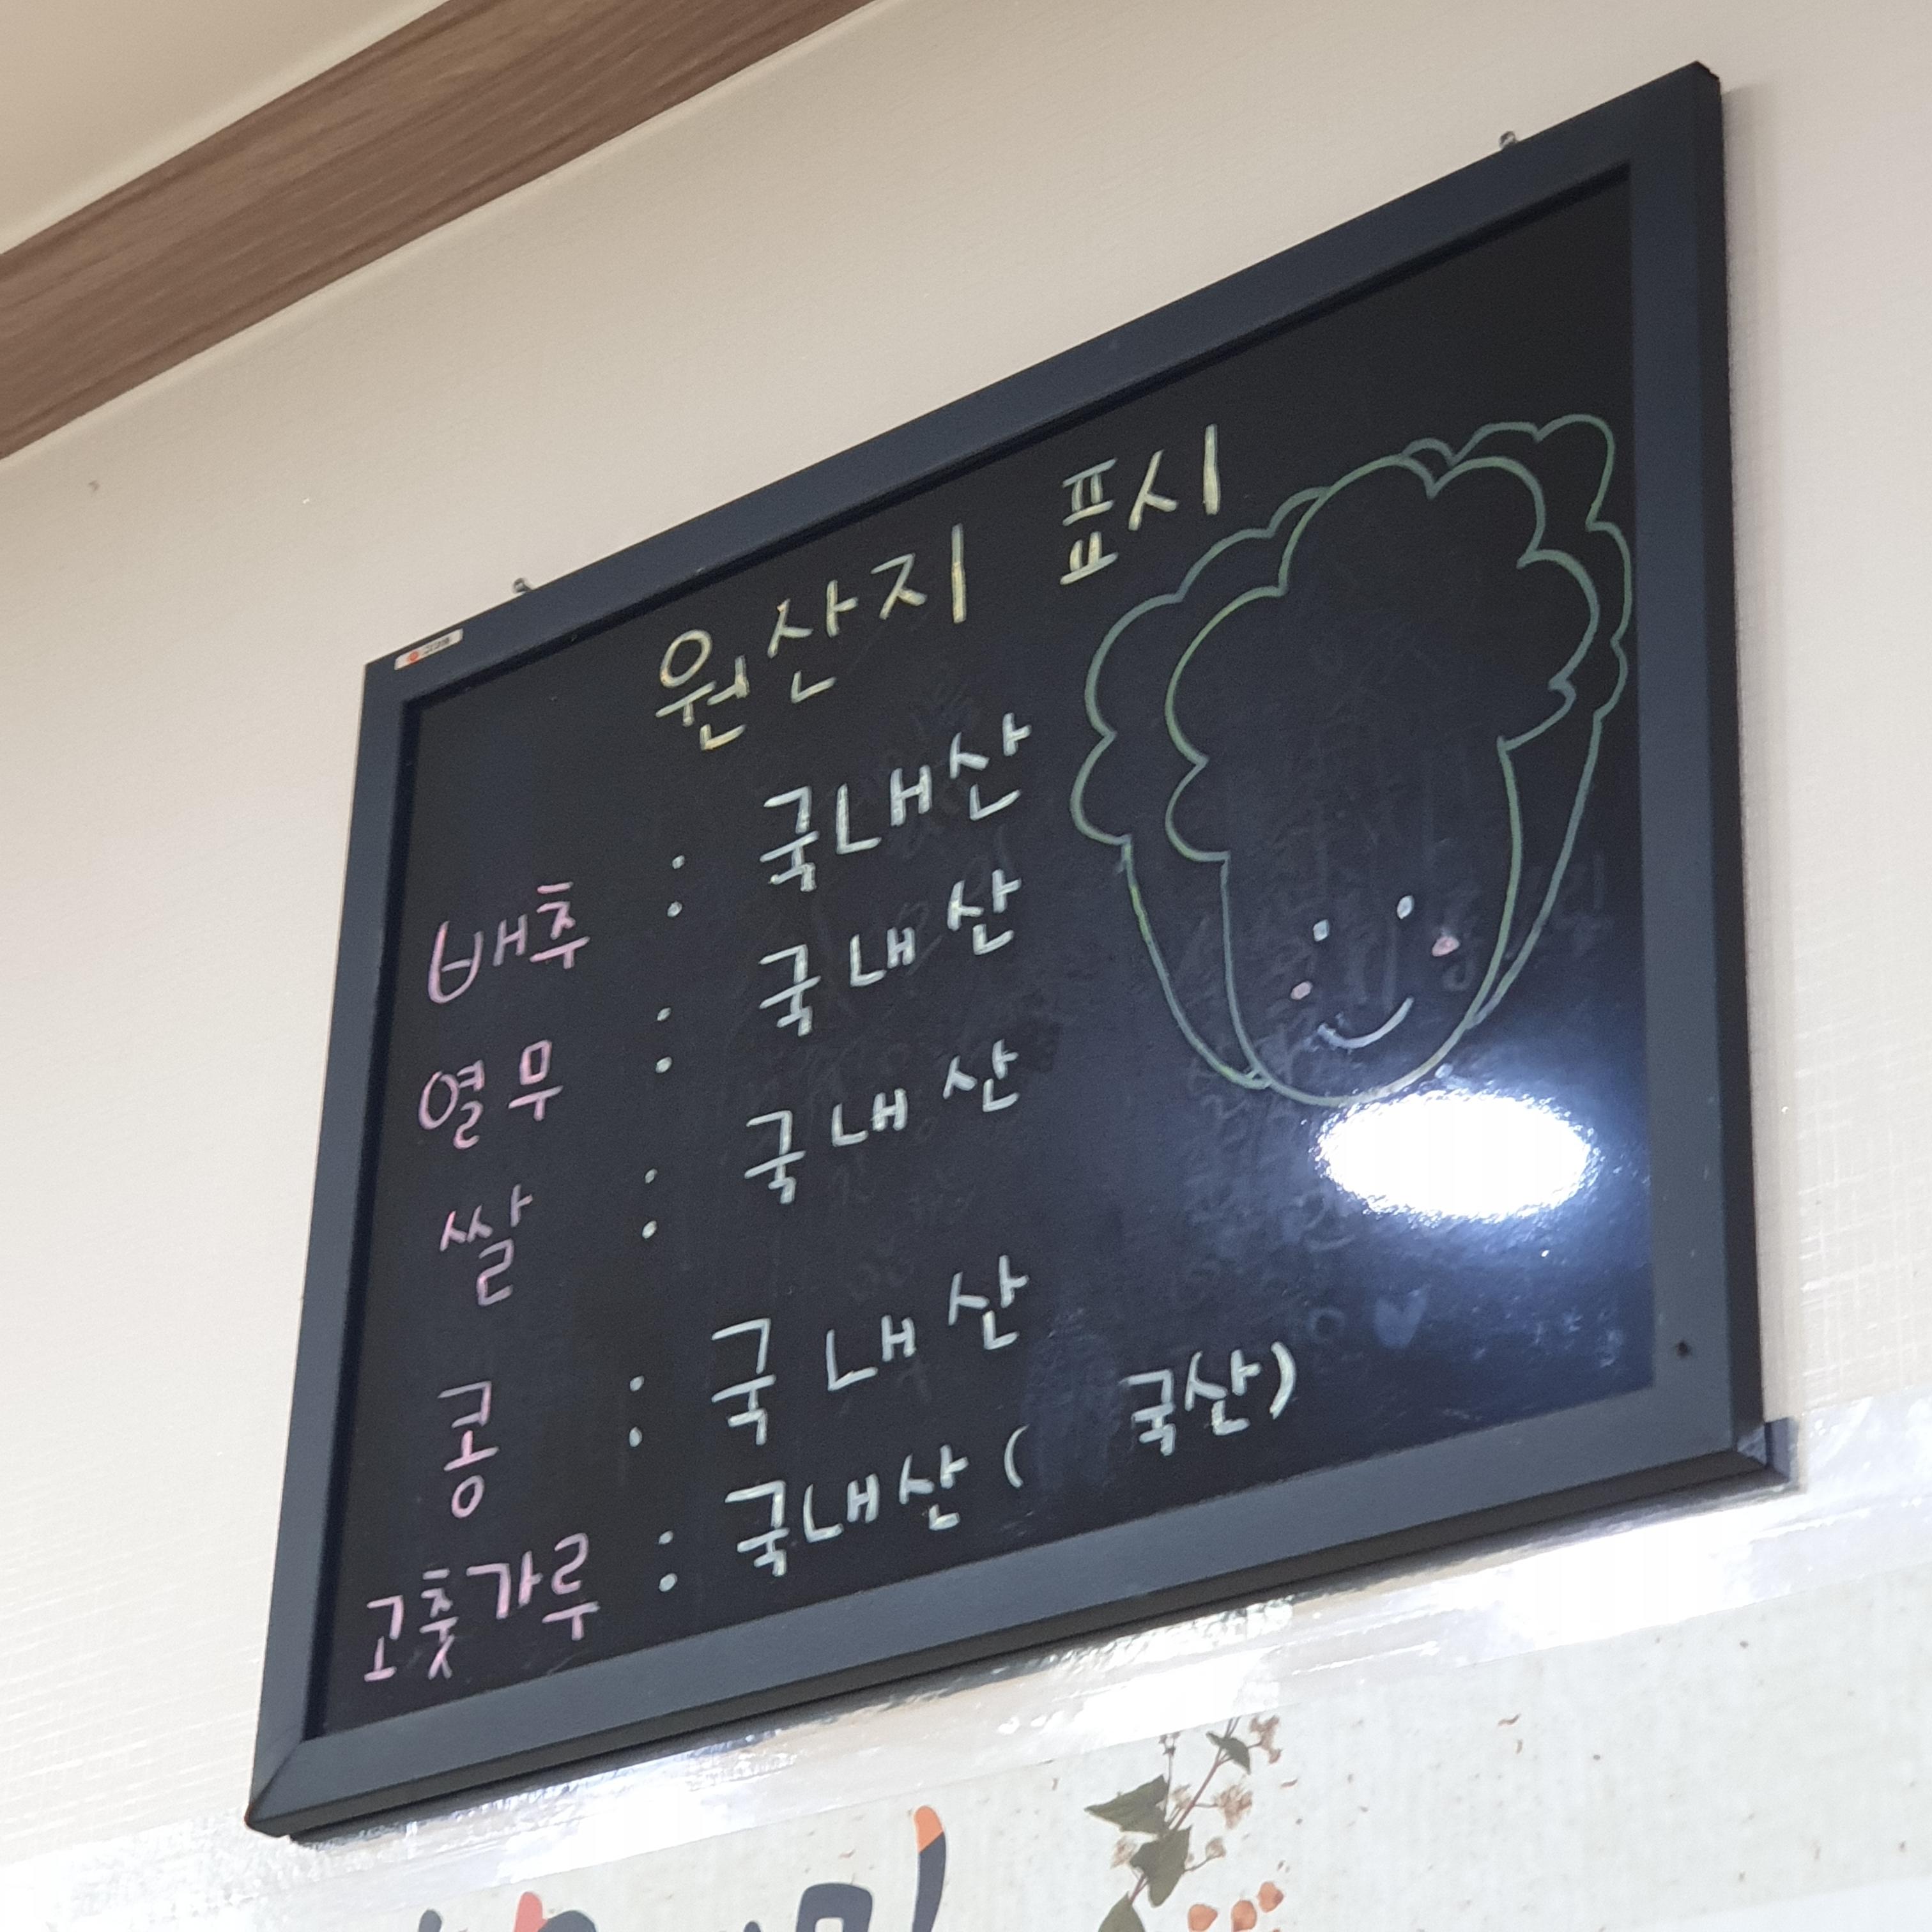 원산지 표시
배추 : 국내산
열무 : 국내산
쌀 : 국내산
콩 : 국내산
고춧가루 : 국내산 ( 국산)